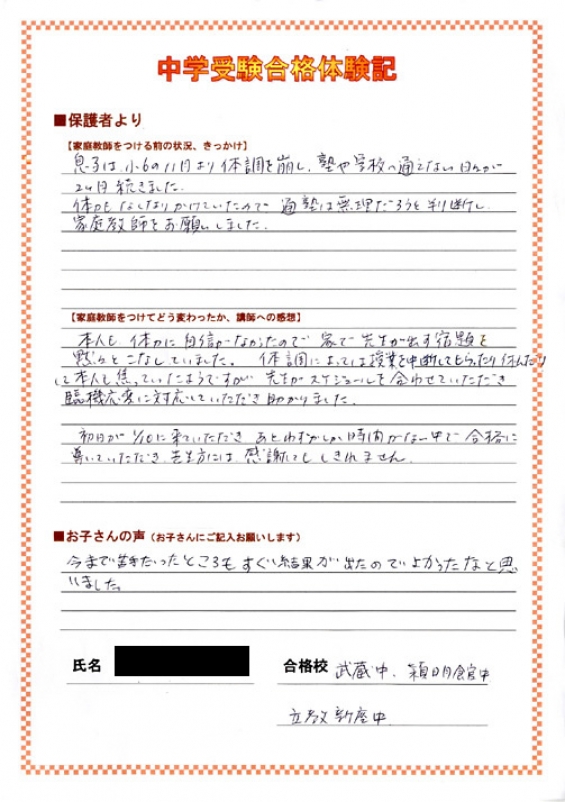 中学受験合格体験記
■保護者より
【家庭教師をつける前の状況、きっかけ】
息子は、小6の11月より体調を崩し、塾や学校へ通えない日々が
2ヶ月続きました。
体力もなくなりかけていたので通塾は無理だろうと判断し、
家庭教師をお願いしました。
【家庭教師をつけてどう変わったか、講師への感想】
本人も体力に自信がなかったので家で先生が出す宿題を
黙々とこなしていました。体調によっては授業を中断してもらったり休んだり
して本人も焦っていたようですが先生がスケジュールを合わせていただき
臨機応変に対応していただき助かりました。
初日が1/10に来ていただき、あとわずかしか時間がない中で合格に
導いていただき、先生方には、感謝してもしきれません。
■お子さんの声（お子さんにご記入お願いします）
今まで苦手だったところもすぐ結果が出たのでよかったなと思
いました。
氏名
合格校 武蔵中、穎明館中
立教新座中